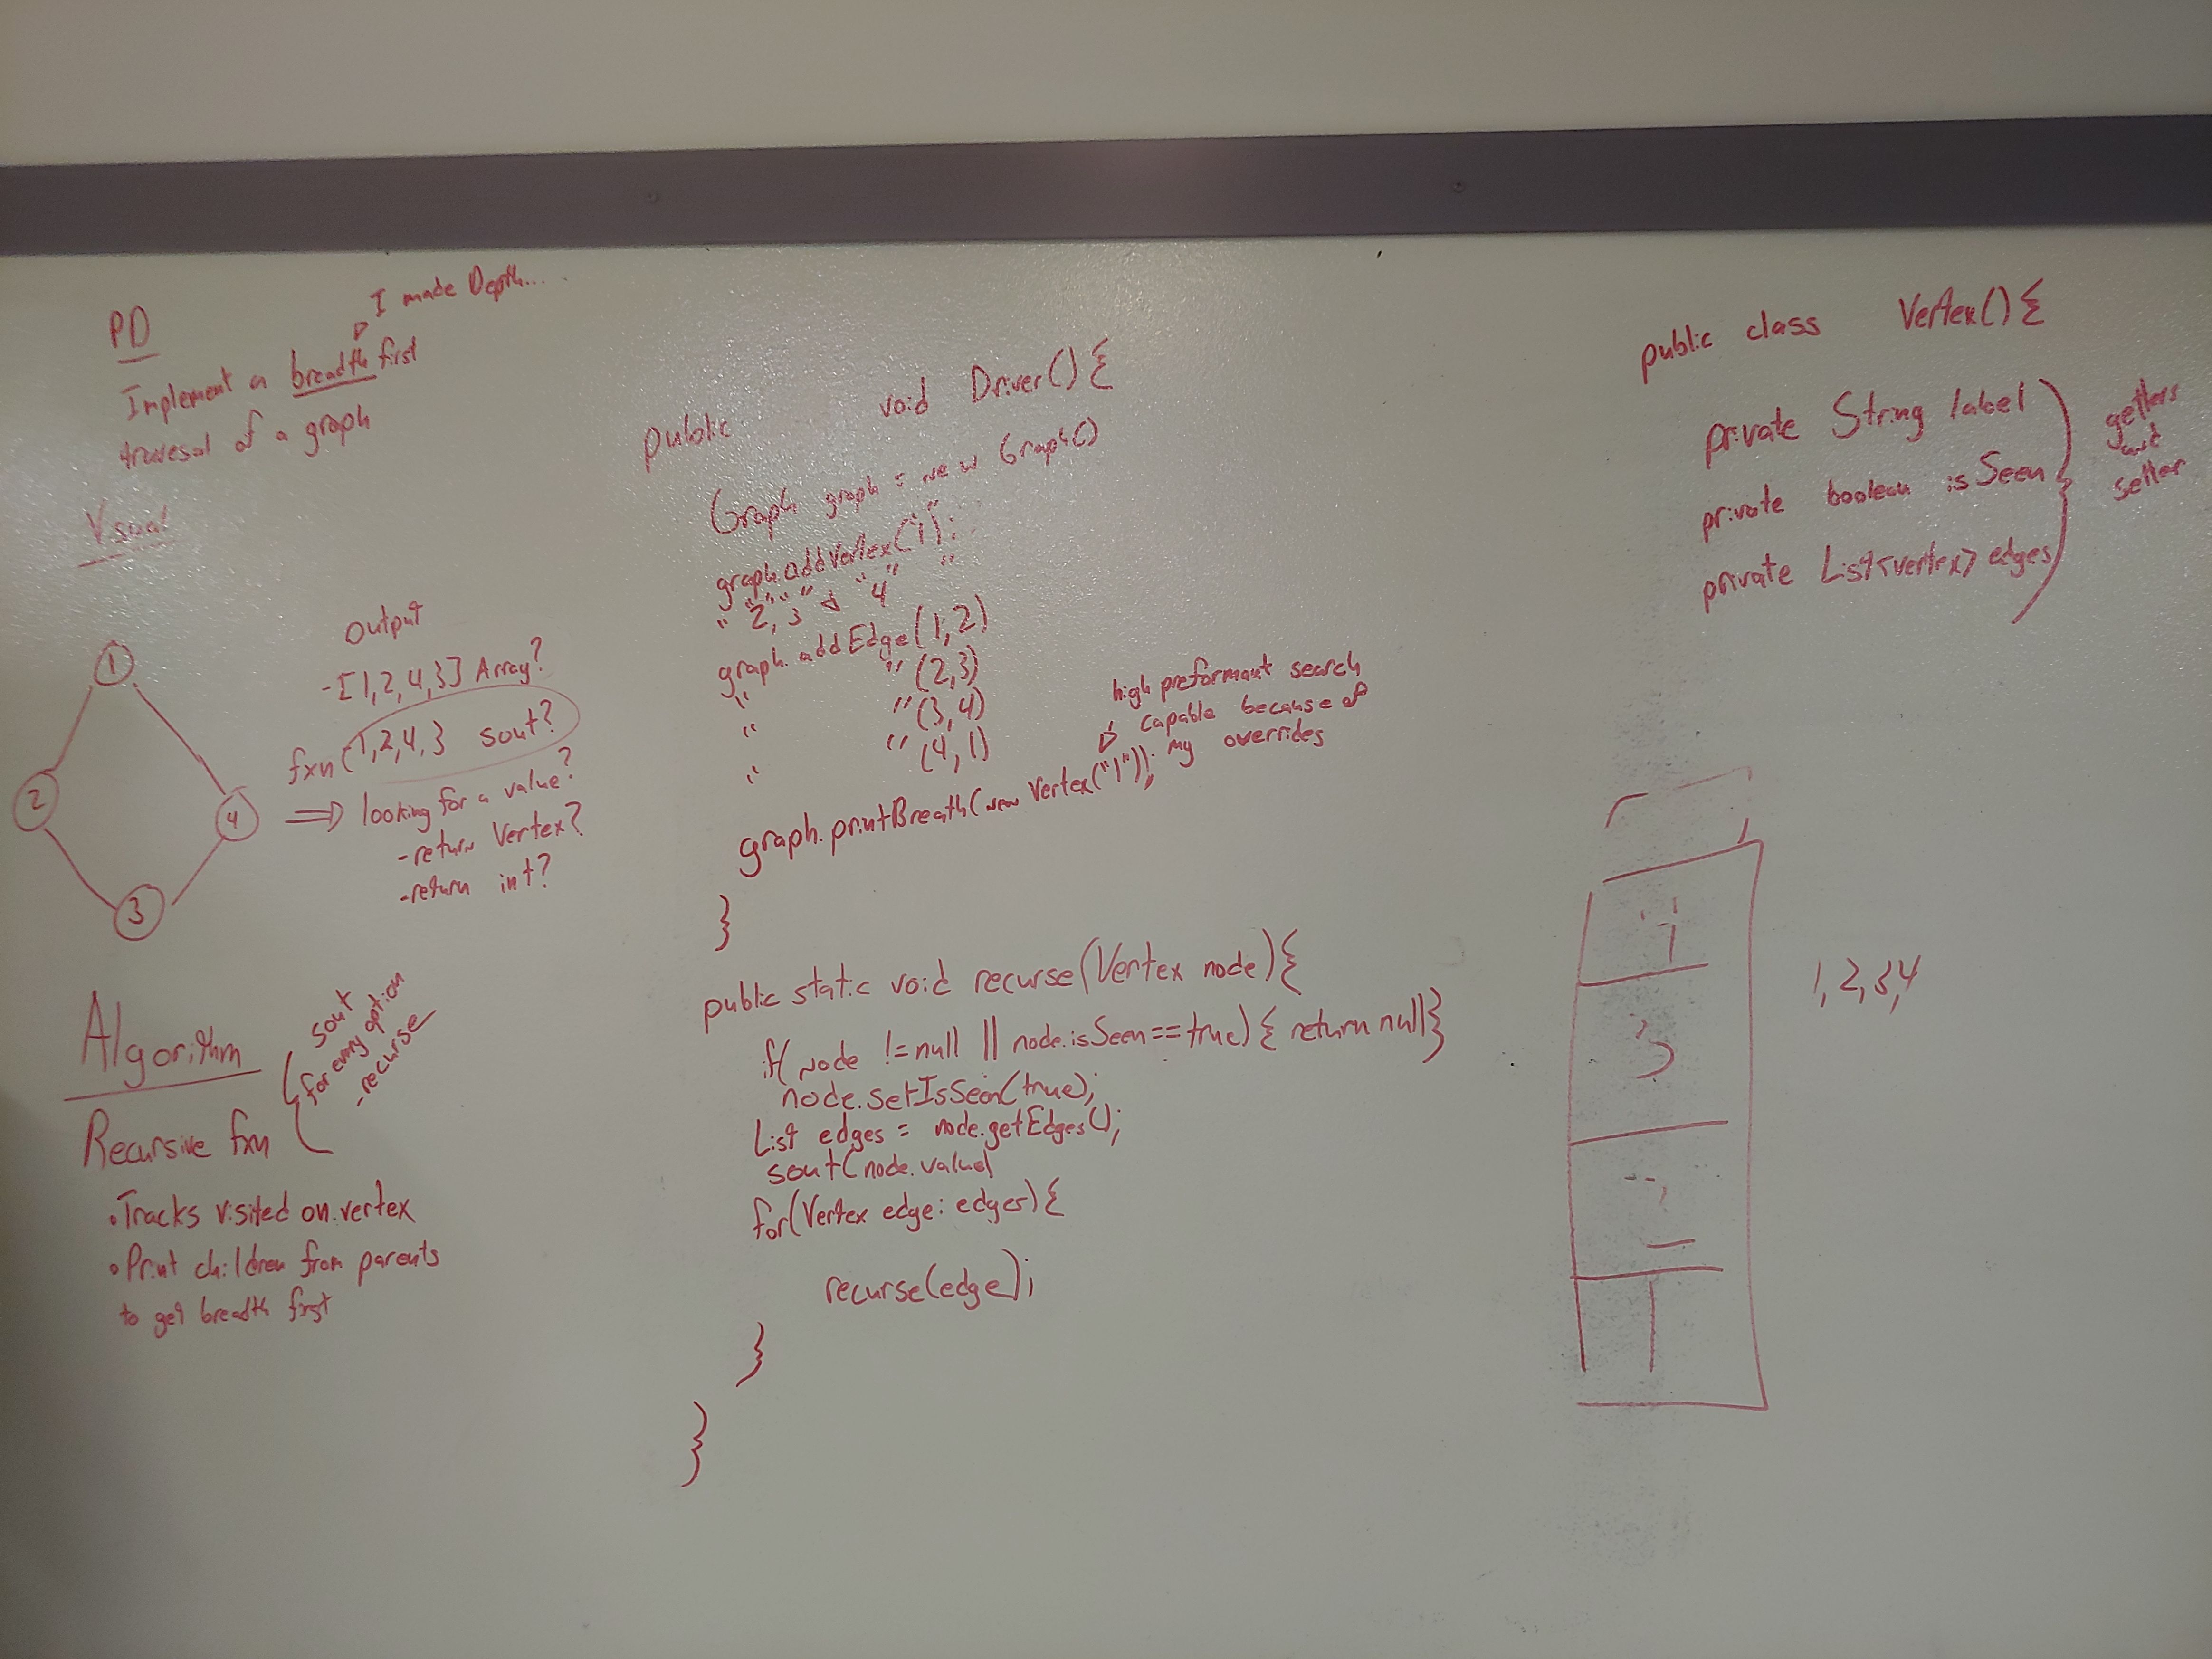 PD
I made Depth...
Implement a breadth first
traversal of a graph
Visual
1
2
4
3
Output
- [1,2,4,3] Array?
fxn (1,2,4,3 sout?
=> looking for a value?
- return Vertex?
- return int?
Algorithm
Recursive fxn
sout
for every option
- recurse
• Tracks visited on vertex
• Print children from parents
to get breadth first
public void Driver() {
Graph graph = new Graph()
graph.addVertex("1");
" "2", "3" & "4" "
graph.addEdge(1,2)
" " (2,3)
" " (3,4)
" " (4,1)
graph.printBreath(new Vertex("1"));
high preformant search
capable because of
my overrides
}
public static void recurse(Vertex node){
if( node != null || node.isSeen == true) { return null}
node.setIsSeen(true);
List edges = node.getEdges();
sout(node.value)
for(Vertex edge: edges) {
recurse(edge);
}
}
public class Vertex() {
private String label
private boolean isSeen
private List<vertex> edges
getters
and
setter
3
1,2,3,4